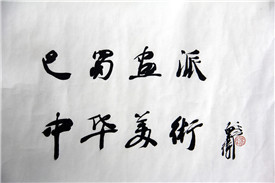 巴蜀画派
中华美術